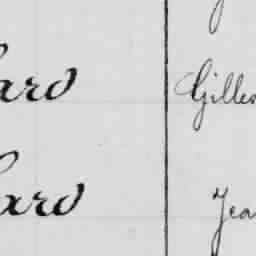 ard Gilles
ard Jea